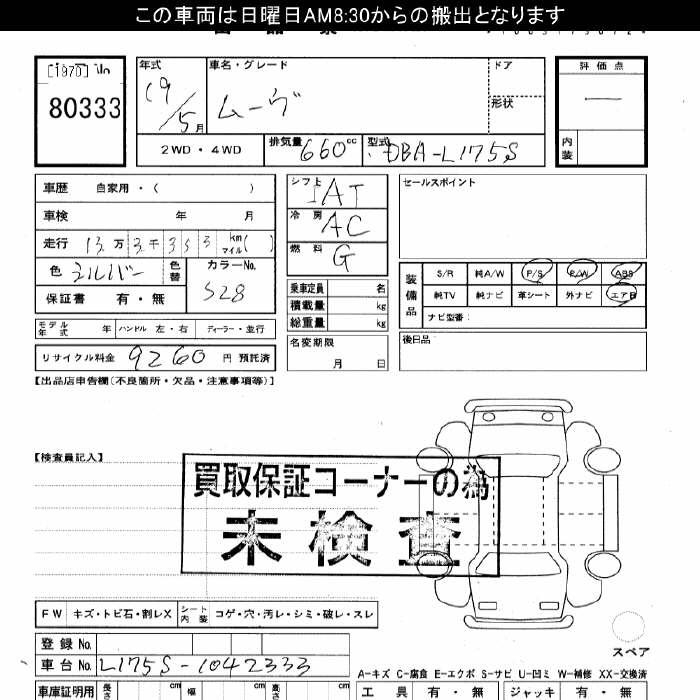 この車両は日曜日AM8:30からの搬出となります
80333
年式
19/5月
車名・グレード
ムーヴ
ドア
形状
評価点
—
内装
2WD・4WD
排気量 660 cc
型式 DBA-L175S
車歴 自家用・( )
車検 年 月
走行 13万3千353 km マイル( )
色 シルバー
色替
カラーNo.
S28
保証書 有・無
シフト IAT
冷房 AC
燃料 G
乗車定員 名
積載量 kg
総重量 kg
セールスポイント
装備品
S/R 純A/W P/S P/W ABS
純TV 純ナビ 革シート 外ナビ エアB
ナビ型番:
モデル年式 年 ハンドル 左・右 ディーラー・並行
名変期限
月 日
後日品
リサイクル料金 9260 円 預託済
【出品店申告欄(不良箇所・欠品・注意事項等)】
【検査員記入】
買取保証コーナーの為
未検査
FW キズ・トビ石・割レX
シート内装 コゲ・穴・汚レ・シミ・破レ・スレ
スペア
登録No.
車台No. L175S-1042333
A-キズ C-腐食 E-エクボ S-サビ U-凹ミ W-補修 XX-交換済
車庫証明用 長さ cm 幅 cm 高さ cm
工具 有・無 ジャッキ 有・無